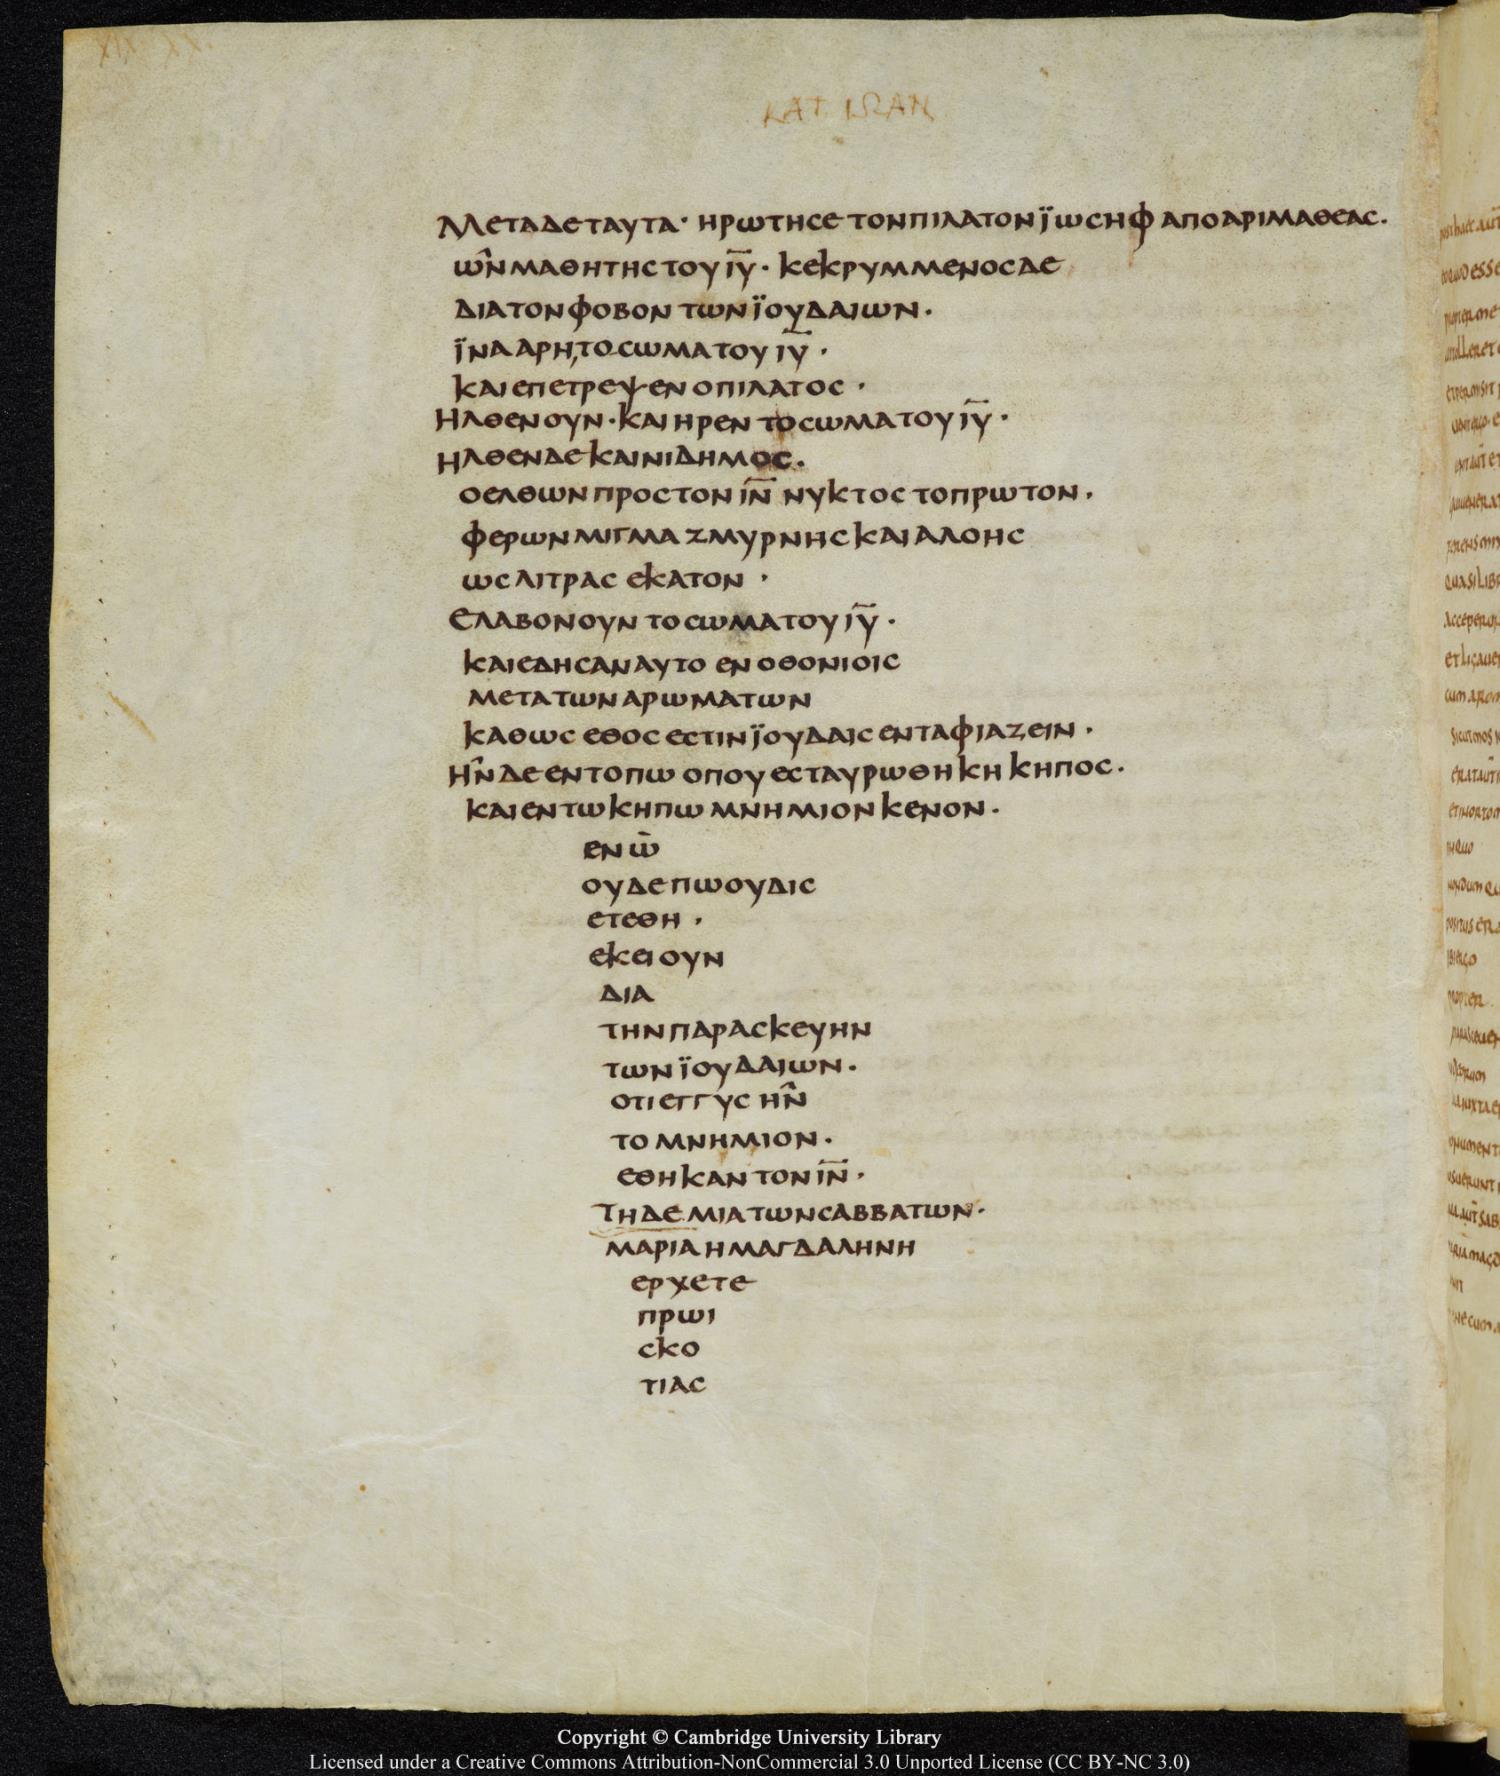 XIX XX.
ΚΑΤ ΙΩΑΝ
ΜεταΔεταυτα· ηρωτησε τονπιλατον ϊωσηφ αποαριμαθεας.
ων̂ μαθητης του ιῡ· κεκρυμμενος δε
διατονφοβον των ϊουδαιων.
ϊνα αρη,το σωμα του ιῡ·
και επετρεψεν ο πιλατος·
Ηλθεν ουν· και ηρεν το σωμα του ιῡ·
ηλθεν δε και νιδημος.
ο ελθων προς τον ιν̄ νυκτος το πρωτον.
φερων μιγμα ζμυρνης και αλοης
ως λιτρας εκατον·
Ελαβον ουν το σωμα του ιῡ·
και εδησαν αυτο εν οθονιοις
μετα των αρωματων
καθως εθος εστιν ϊουδαις ενταφιαζειν·
Ην̂ δε εν τοπω οπου εσταυρωθη κη κηπος.
και εν τω κηπω μνημιον κενον.
εν ω̇
ουδεπω ουδις
ετεθη·
εκει ουν
δια
την παρασκευην
των ϊουδαιων.
οτι εγγυς ην̂
το μνημιον.
εθηκαν τον ιν̄·
Τη δε μια των σαββατων·
μαρια η μαγδαληνη
ερχετε
πρωι
σκο
τιας
Copyright © Cambridge University Library
Licensed under a Creative Commons Attribution-NonCommercial 3.0 Unported License (CC BY-NC 3.0)